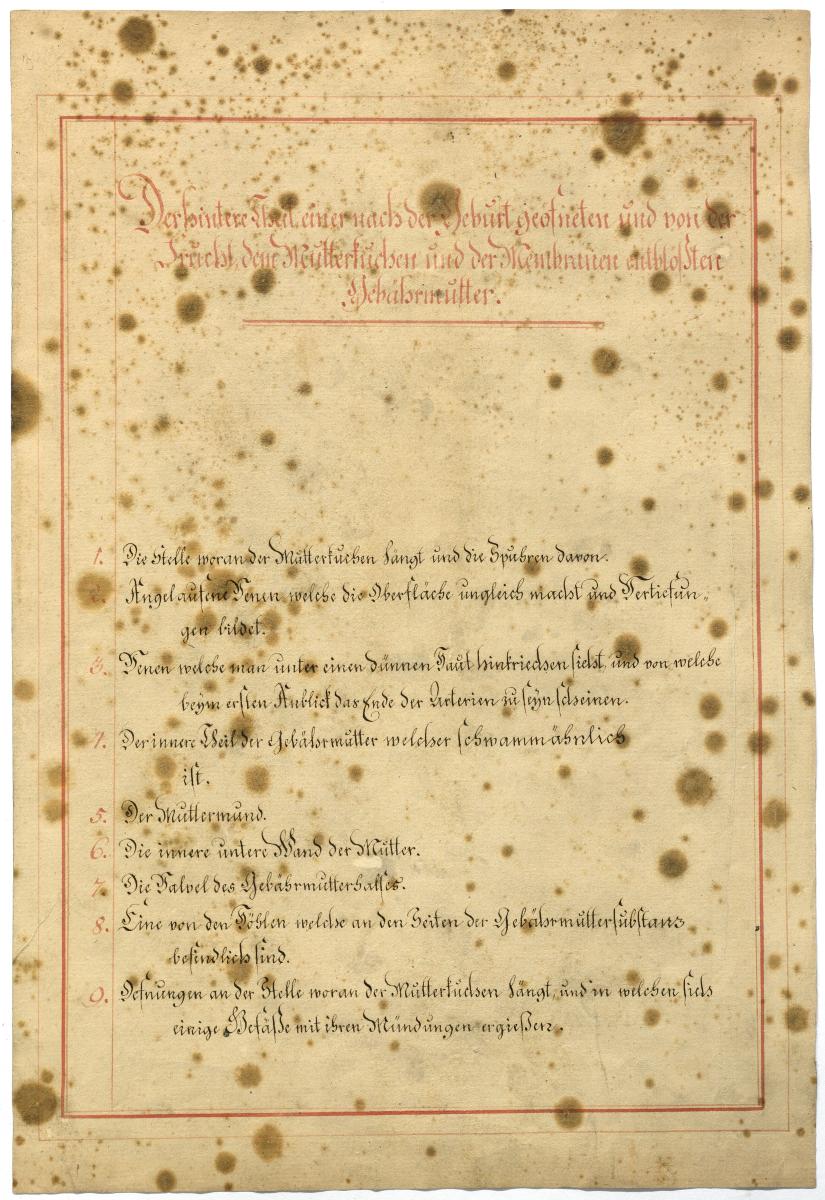 Der hintere Theil einer nach der Geburt geöfneten und von der
Frucht, dem Mutterkuchen und der Membranen entblößten
Gebährmutter.
1. Die Stelle woran der Mutterkuchen hängt und die Spuhren davon.
2. Angelaufene Venen welche die Oberfläche ungleich macht und Vertiefun„
gen bildet.
3. Venen welche man unter einen dünnen Haut hinkriechen sieht, und von welche
beym ersten Anblick das Ende der Arterien zu seyn scheinen.
4. Der innere Theil der Gebährmutter welcher schwammähnlich
ist.
5. Der Muttermund.
6. Die innere untere Wand der Mutter.
7. Die Valvel des Gebährmutterhalses.
8. Eine von den Höhlen welche an den Seiten der Gebährmuttersubstanz
befindlich sind.
9. Oefnungen an der Stelle woran der Mutterkuchen hängt, und in welchen sich
einige Gefäße mit ihren Mündungen ergießen.